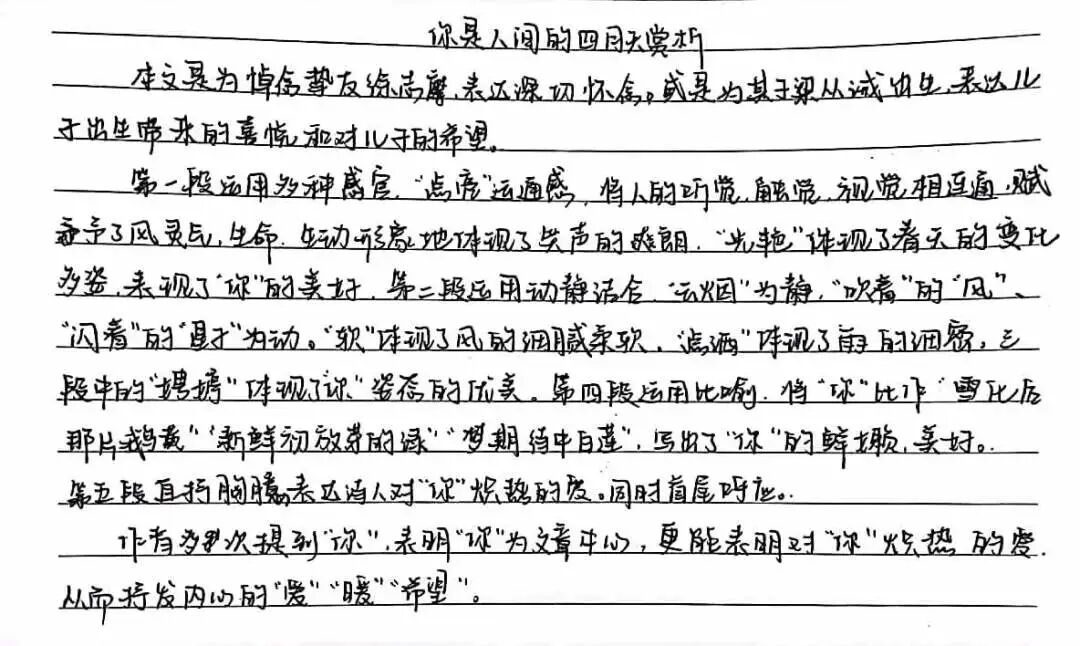 你是人间的四月天赏析
本文是为悼念挚友徐志摩,表达深切怀念。或是为其子梁从诫出生,表达儿
子出生带来的喜悦和对儿子的希望。
第一段运用多种感官,“点亮”运通感,将人的听觉,触觉,视觉相连通,赋
予了风灵气,生命,生动形象地体现了笑声的爽朗,“光艳”体现了春天的变化
多姿,表现了“你”的美好,第二段运用动静结合,“云烟”为静,“吹着”的“风”、
“闪着”的“星子”为动。“软”体现了风的细腻柔软,“点洒”体现了雨的细密,三
段中的“娉婷”体现了“你”姿态的优美。第四段运用比喻,将“你”比作“雪化后
那片鹅黄”“新鲜初放芽的绿”“梦期待中白莲”,写出了“你”的美好。
第五段直抒胸臆,表达诗人对“你”炽热的爱。同时首尾呼应。
作者多次提到“你”,表明“你”为文章中心,更能表明对“你”炽热的爱,
从而抒发内心的“爱”“暖”“希望”。